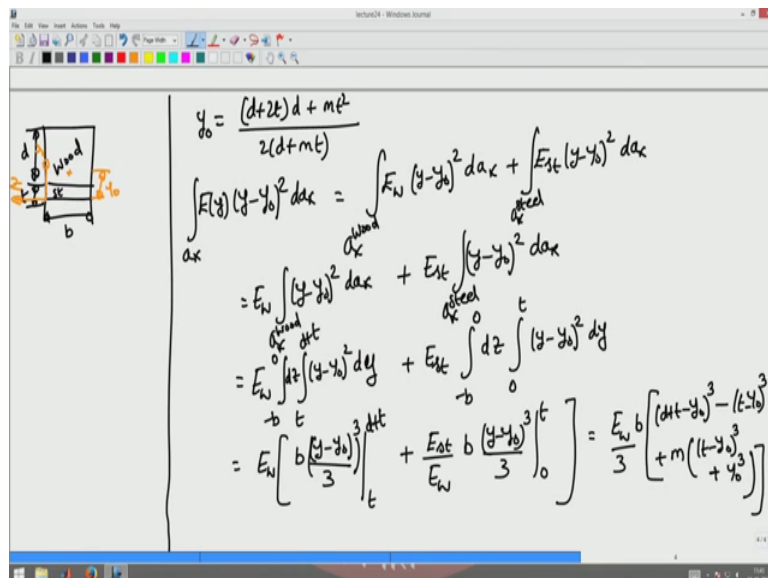 lecture24 - Windows Journal
File Edit View Insert Actions Tools Help
Page Width
B I
d wood
t st
z y₀
b
y₀ = ((d+2t)d + mt²) / (2(d+mt))
∫_{aₓ} E(y) (y-y₀)² daₓ = ∫_{aₓ^wood} E_w (y-y₀)² daₓ + ∫_{aₓ^steel} E_st (y-y₀)² daₓ
= E_w ∫_{aₓ^wood} (y-y₀)² daₓ + E_st ∫_{aₓ^steel} (y-y₀)² daₓ
= E_w ∫_{-b}^{0} dz ∫_{t}^{d+t} (y-y₀)² dy + E_st ∫_{-b}^{0} dz ∫_{0}^{t} (y-y₀)² dy
= E_w [ b (y-y₀)³/3 |_{t}^{d+t} + E_st/E_w b (y-y₀)³/3 |_{0}^{t} ] = E_w/3 b [ (d+t-y₀)³ - (t-y₀)³ + m((t-y₀)³ + y₀³) ]
4/4